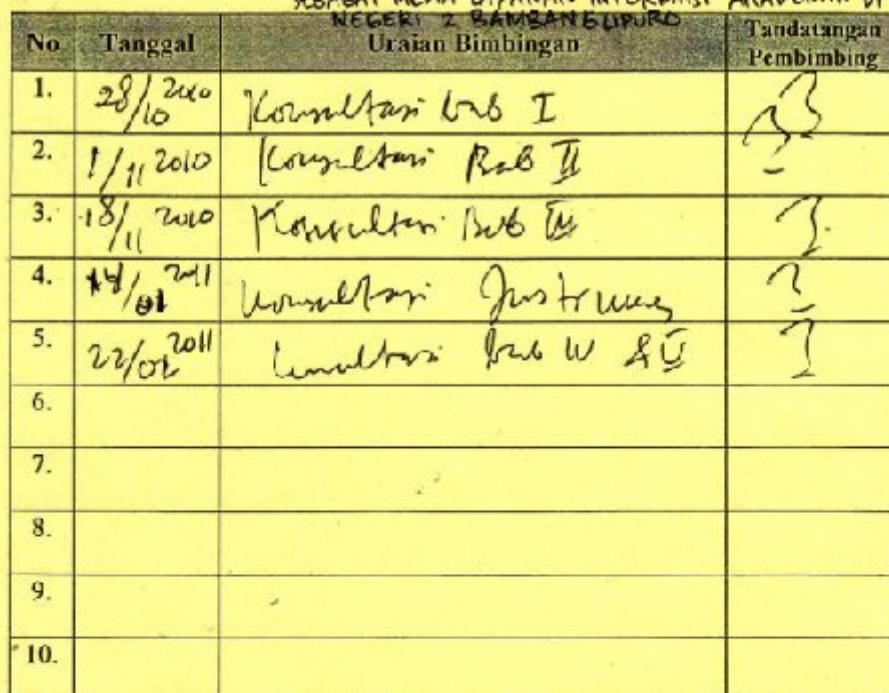 SEBAGAI MEDIA LAYANAN INFORMASI AKADEMIK DI
NEGERI 2 BAMBANGLIPURO
No Tanggal Uraian Bimbingan Tandatangan Pembimbing
1. 28/10 2010 Konsultasi bab I
2. 1/11 2010 Konsultasi Bab II
3. 18/11 2010 Konsultasi Bab III
4. 14/01 2011 Konsultasi Instrumen
5. 22/02 2011 Konsultasi bab IV & V
6.
7.
8.
9.
10.